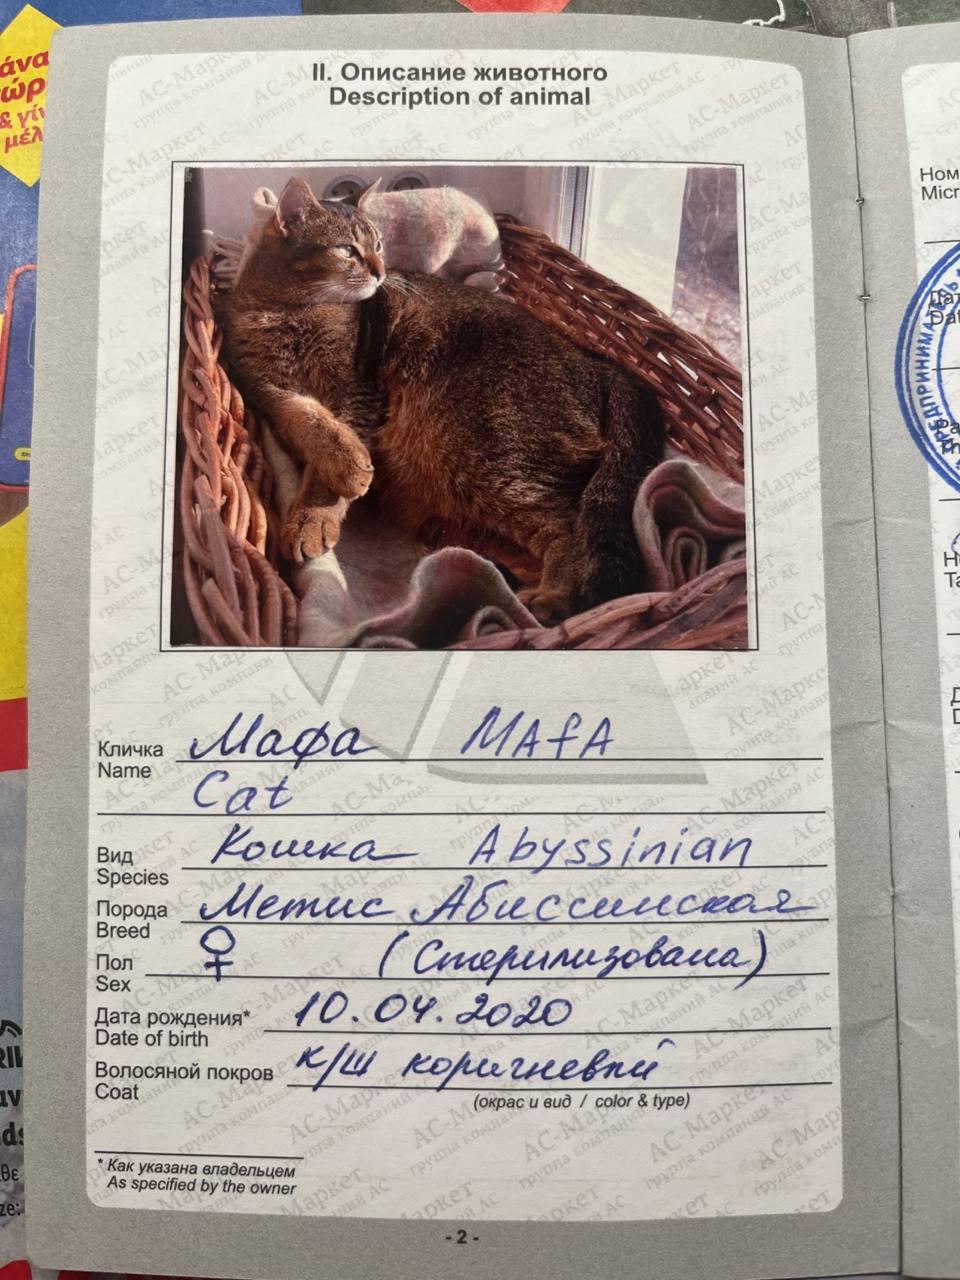 II. Описание животного
Description of animal
Кличка Мафа MAfA
Name
Cat
Вид Кошка Abyssinian
Species
Порода Метис Абиссинская
Breed
Пол ♀ (Стерилизована)
Sex
Дата рождения* 10.04.2020
Date of birth
Волосяной покров к/ш коричневый
Coat
(окрас и вид / color & type)
* Как указана владельцем
As specified by the owner
- 2 -